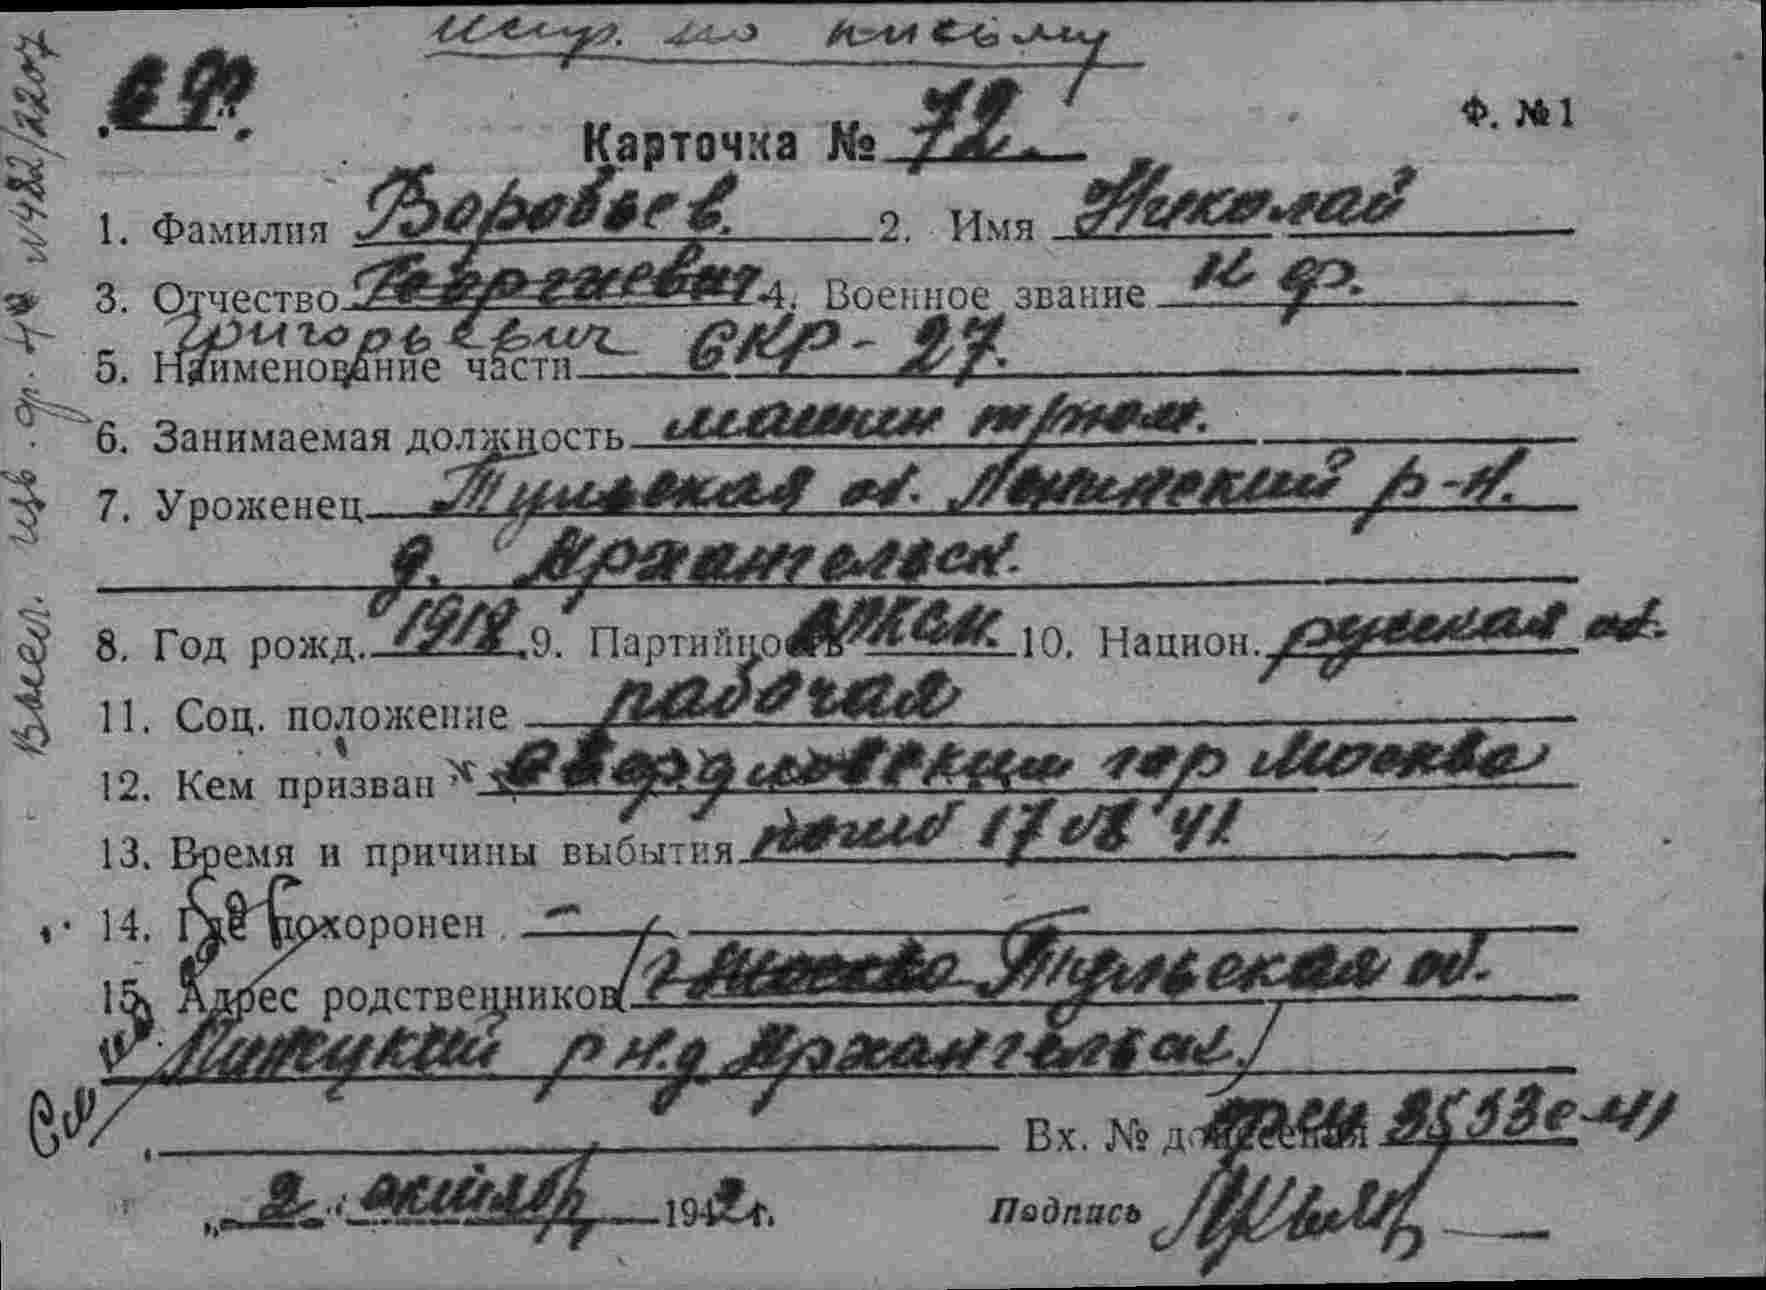 испр. по письму
Ф. № 1
Карточка № 72.
1. Фамилия Воробьев. 2. Имя Николай
3. Отчество Георгиевич 4. Военное звание к ф.
Григорьевич
5. Наименование части СКР-27.
6. Занимаемая должность машин
7. Уроженец Тульская об. Ленинский р-н.
д. Архангельск.
8. Год рожд. 1918. 9. Партийность ВЛКСМ. 10. Национ. русская
11. Соц. положение рабочая
12. Кем призван Свердловский гор Москва
13. Время и причины выбытия погиб 17 08 41
14. Где похоронен —
15. Адрес родственников (г Москва Тульская об.
р н. д Архангельск.)
Вх. № донесения
„ 2 " октябр 1942 г. Подпись
Высл. изв. ф. № 482/2207
См